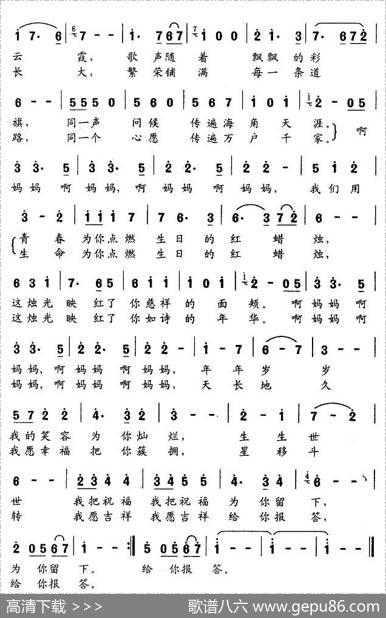 1 7· 6 | 7 - - | 1 7 6 7 | 1 0 0 | 2· 1 3 | 7· 6 7 2
云 霞， 歌 声 随 着 飘 飘 的 彩
长 大， 繁 荣 铺 满 每 一 条 道
6 - - | 5 5 5 0 | 5 6 0 | 5 6 7 | 1 0 1 | 2 - 0 5
旗， 同一声 问 候 传 遍 海 角 天 涯。 啊
路， 同一个 心 愿 传 遍 万 户 千 家。
3 3· 5 | 3 3· 5 | 2 2· 5 | 2 2· | 1 2 1
妈 妈 啊 妈 妈 啊 妈 妈 啊 妈 妈， 我 们 用
3 - 2 | 1 1 1 7 | 7 6· 3 | 2 - 3 | 6· 3 7 2 | 2 - -
青 春 为你点燃 生 日 的 红 蜡 烛，
生 命 为你点燃 生 日 的 红 蜡 烛，
6 3 1 | 3· 5 7 | 6 6 1 | 1 0 1 | 2 - 0 5 | 3 3· 5
这烛光 映 红了 你慈祥 的 面 颊。 啊 妈妈 啊
这烛光 映 红了 你如诗 的 年 华。 啊 妈妈 啊
3 3· 5 | 2 2· 5 | 2 2· | 1 - 7 | 6 - 7 | 3 - -
妈妈，啊 妈妈 啊 妈妈， 年 年 岁 岁
妈妈，啊 妈妈 啊 妈妈， 天 长 地 久
5 7 2 2 | 4· 3 2 | 3 - - | 2 - 2 | 2 - 1 | 7 - -
我的笑容 为 你灿 烂， 生 生 世
我愿幸福 把 你簇 拥， 星 移 斗
6 - - | 2 3 4 4 | 3 4 5 5 | 4· 3 4 | 6 - - | 1 -
世 我把祝福 我把祝福 为 你留 下，
转 我愿吉祥 我愿吉祥 给 你报 答，
2 0 5 6 7 | 1 - - :‖ 5 0 5 6 7 | 1 - - | 1 - - ‖
为 你留 下。 给 你报 答。
给 你报 答。
高清下载 >>>
歌谱八六 www.gepu86.com